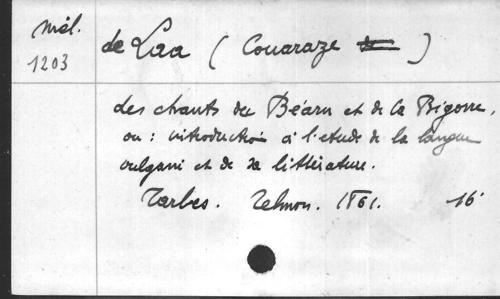 Mél. 1203
de Laa (Couaraze)
des chants du Béarn et de la Bigorre,
ou: introduction à l'etude de la langue
vulgaire et de sa littérature.
Tarbes. Telmon. 1861. 16°